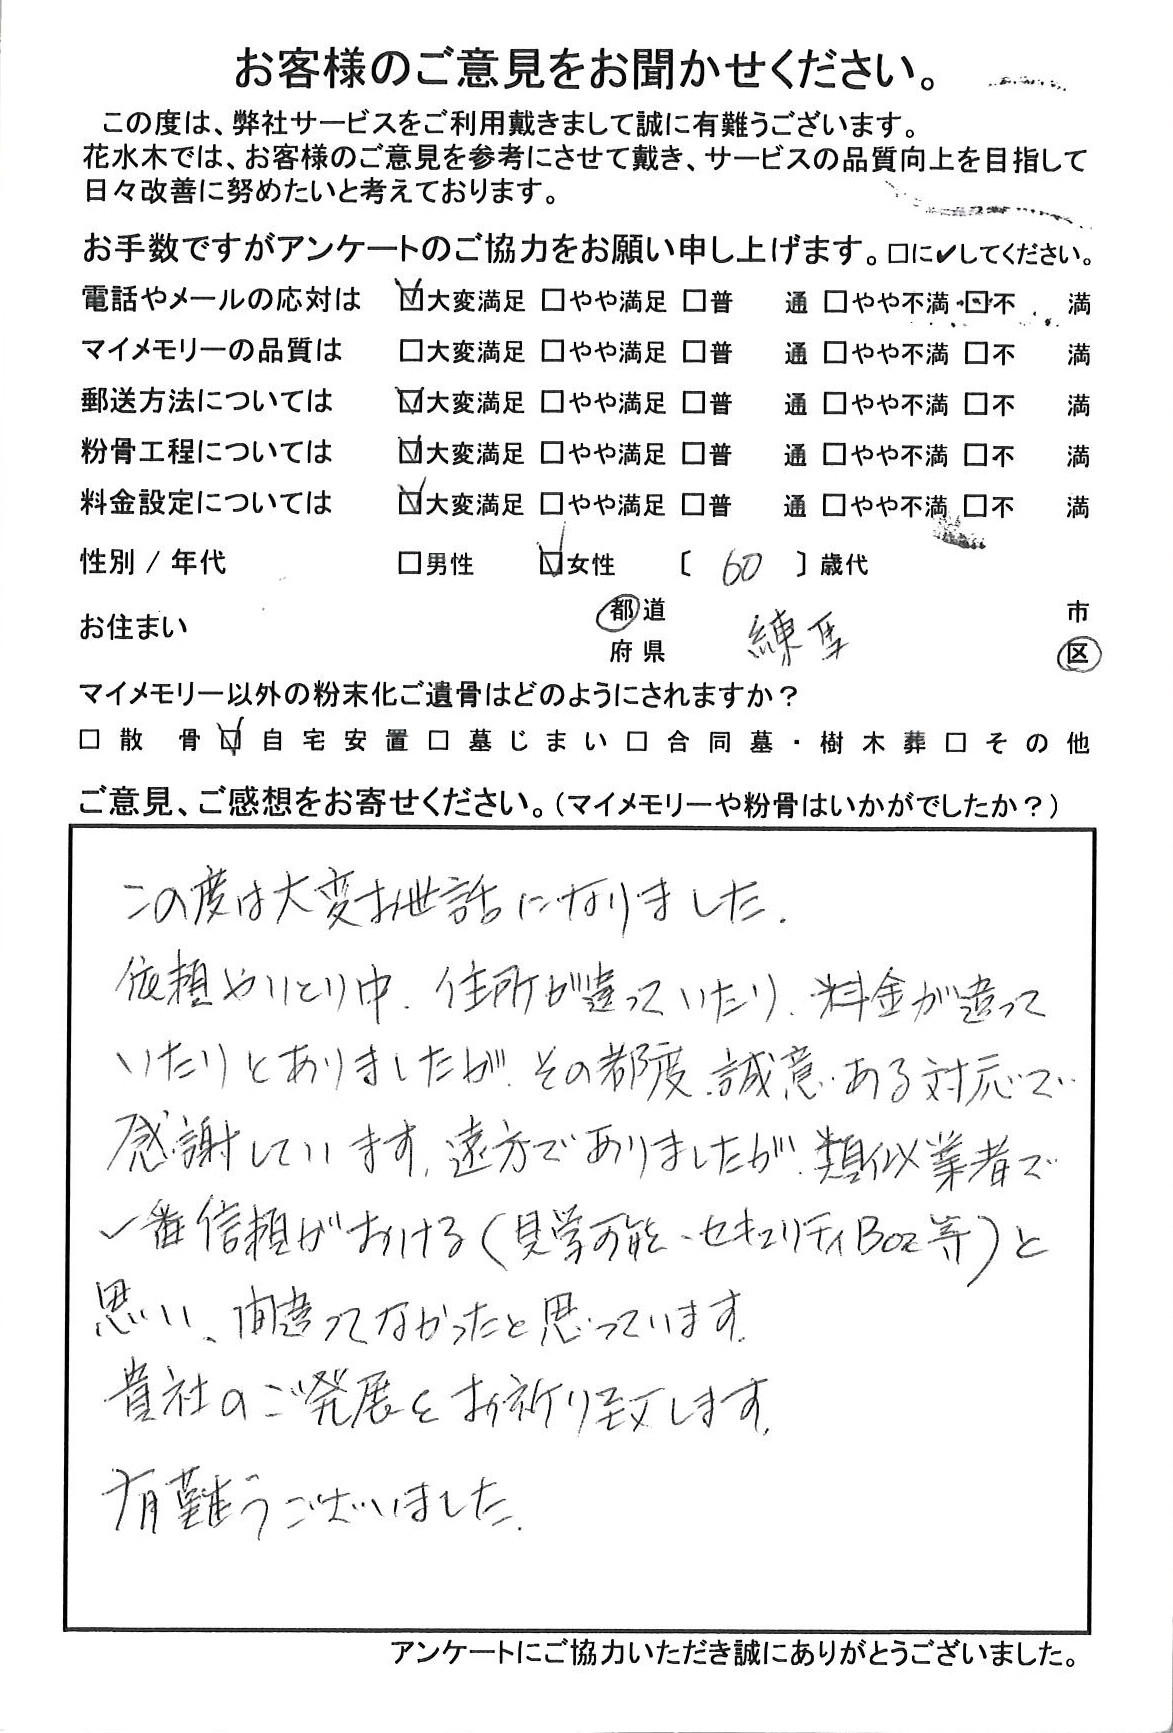 お客様のご意見をお聞かせください。
この度は、弊社サービスをご利用戴きまして誠に有難うございます。
花水木では、お客様のご意見を参考にさせて戴き、サービスの品質向上を目指して
日々改善に努めたいと考えております。
お手数ですがアンケートのご協力をお願い申し上げます。□に✔してください。
電話やメールの応対は ☑大変満足 □やや満足 □普 通 □やや不満 □不 満
マイメモリーの品質は □大変満足 □やや満足 □普 通 □やや不満 □不 満
郵送方法については ☑大変満足 □やや満足 □普 通 □やや不満 □不 満
粉骨工程については ☑大変満足 □やや満足 □普 通 □やや不満 □不 満
料金設定については ☑大変満足 □やや満足 □普 通 □やや不満 □不 満
性別 / 年代 □男性 ☑女性 〔 60 〕歳代
お住まい 都道 府県 練馬 市 区
マイメモリー以外の粉末化ご遺骨はどのようにされますか?
□散 骨 ☑自宅安置 □墓じまい □合同墓・樹木葬 □その他
ご意見、ご感想をお寄せください。(マイメモリーや粉骨はいかがでしたか?)
この度は大変お世話になりました.
依頼やりとり中、住所が違っていたり、料金が違って
いたりとありましたが、その都度、誠意ある対応で
感謝しています。遠方でありましたが、類似業者で
一番信頼がおける(見学可能、セキュリティBox等)と
思い、間違ってなかったと思っています。
貴社のご発展をお祈り致します。
有難うございました.
アンケートにご協力いただき誠にありがとうございました。